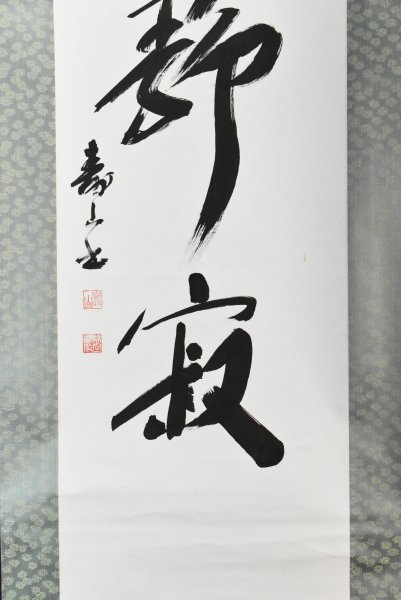 静寂
寿山書